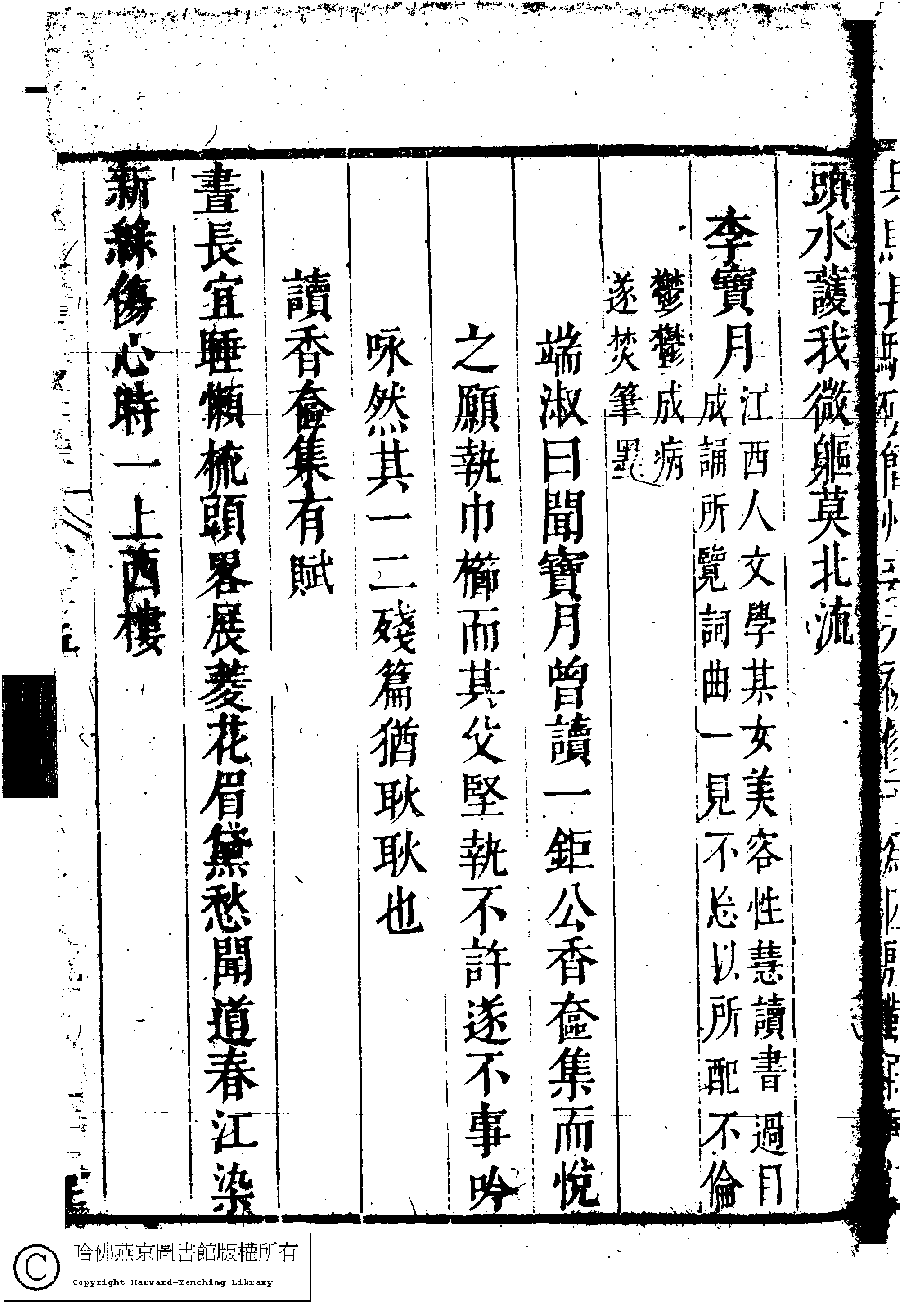 頭水護我微軀莫北流
李寶月
江西人文學其女美容性慧讀書過目
成誦所覽詞曲一見不忘以所配不倫
鬱鬱成病
遂焚筆墨
端淑曰聞寶月曾讀一鉅公香奩集而悅
之願執巾櫛而其父堅執不許遂不事吟
咏然其一二殘篇猶耿耿也
讀香奩集有賦
晝長宜睡懶梳頭畧展菱花眉黛愁聞道春江染
新綠傷心時一上西樓
哈佛燕京圖書館版權所有
Copyright Harvard-Yenching Library